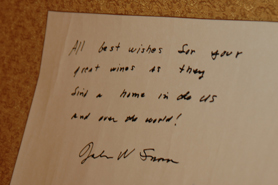 All best wishes for your
great wines as they
find a home in de US
and over de world!
John W